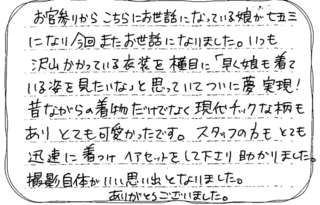 お宮参りから こちらにお世話になっている娘が七五三
になり今回またお世話になりました。いつも
沢山かかっている衣装を横目に「早く娘も着て
いる姿を見たいな」と思っていてついに夢実現!
昔ながらの着物だけでなく現代チックな柄も
あり とても可愛かったです。スタッフの方も とても
迅速に着つけ ヘアセットをして下さり助かりました。
撮影自体がいい思い出となりました。
ありがとうございました。